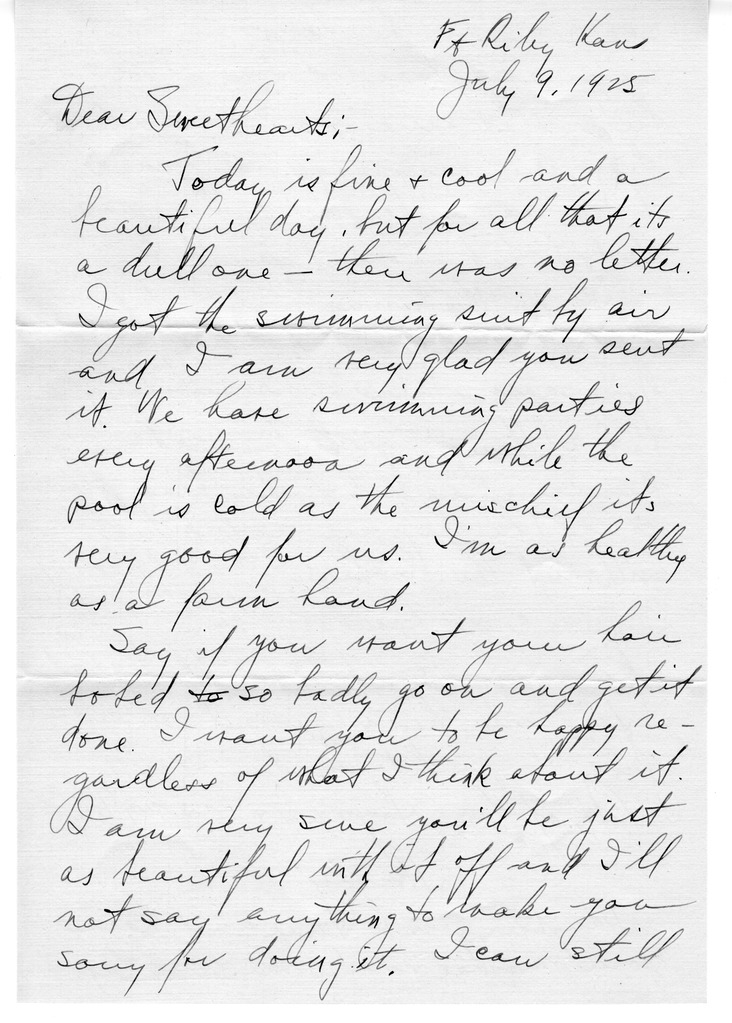 Ft Riley Kans
July 9, 1925
Dear Sweethearts;-
Today is fine + cool and a
beautiful day, but for all that its
a dull one — there was no letter.
I got the swimming suit by air
and I am very glad you sent
it. We have swimming parties
every afternoon and while the
pool is cold as the mischief its
very good for us. I'm as healthy
as a farm hand.
Say if you want your hair
bobed to so badly go on and get it
done. I want you to be happy re-
gardless of what I think about it.
I am very sure you'll be just
as beautiful with it off and I'll
not say anything to make you
sorry for doing it. I can still